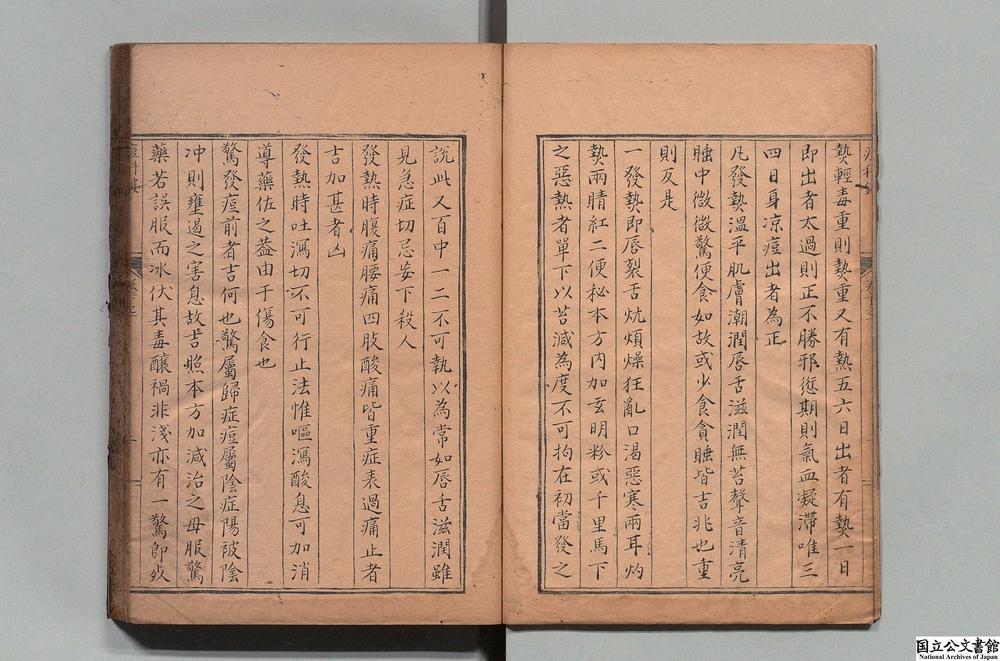 熱輕毒重則熱重又有熱五六日出者有熱一日
即出者太過則正不勝邪愆期則氣血凝滯唯三
四日身凉痘出者為正
凡發熱溫平肌膚潮潤唇舌滋潤無苔聲音清亮
睡中微微驚便食如故或少食貪睡皆吉兆也重
則反是
一發熱即唇裂舌炕煩燥狂亂口渴惡寒兩耳灼
熱兩睛紅二便秘本方內加玄明粉或千里馬下
之惡熱者單下以苔減為度不可拘在初當發之
說此又百中一二不可執以為常如唇舌滋潤雖
見急症切忌妄下殺人
發熱時腹痛腰痛四肢酸痛皆重症表過痛止者
吉加甚者凶
發熱時吐瀉切不可行止法惟嘔瀉酸息可加消
導藥佐之葢由于傷食也
驚發痘前者吉何也驚屬歸症痘屬陰症陽被陰
冲則壅遏之害息故吉照本方加減治之毋服驚
藥若誤服而冰伏其毒釀禍非淺亦有一驚即
国立公文書館
National Archives of Japan